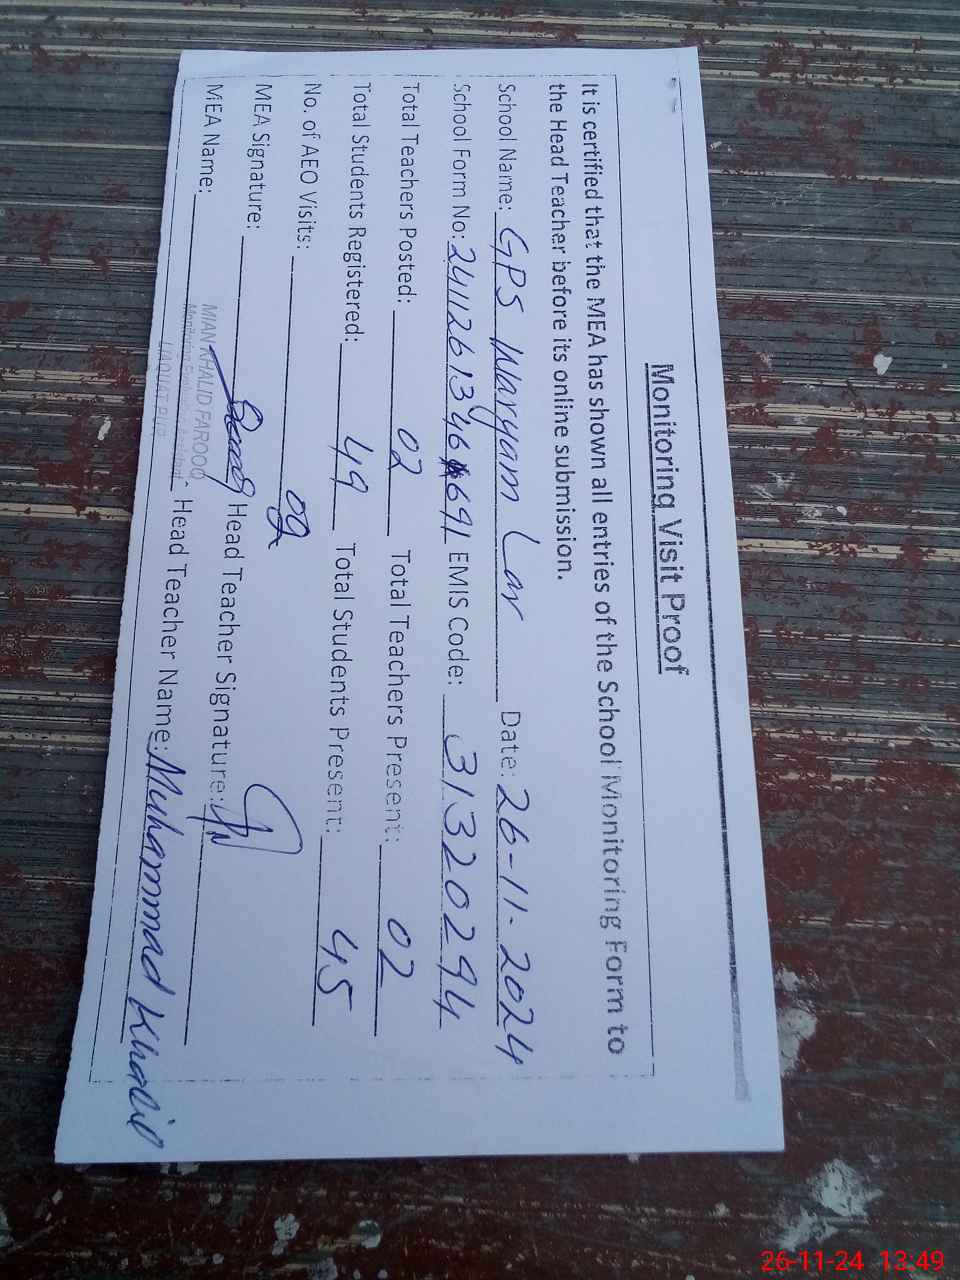 Monitoring Visit Proof
It is certified that the MEA has shown all entries of the School Monitoring Form to
the Head Teacher before its online submission.
School Name: GPS Maryam Lar Date: 26-11-2024
School Form No: 241126134 691 EMIS Code: 31320294
Total Teachers Posted: 02 Total Teachers Present: 02
Total Students Registered: 49 Total Students Present: 45
No. of AEO Visits:
MEA Signature: Head Teacher Signature:
MEA Name: MIAN KHALID FAROOQ Head Teacher Name: Muhammad Khalil
LIAQUAT PUR
26-11-24 13:49